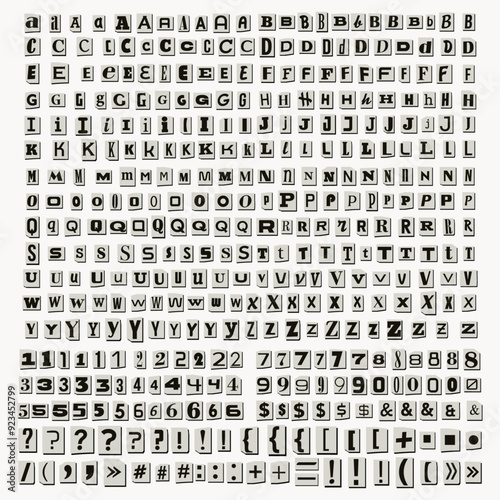 a a A a A A A A A A B B b B B B B B b B
C C C C C C C C C C D D D D d D D D d D
E E e e E E E E E E F F F F F F F F F F
G G G g G G G G G G H H H H H h H H h H
I I I I i I i I I I J J J J J J J J j J
K K K K K K K K K K L L L L L L L L L L
M M M m M M M M M M N N N N N N N N N N
O O O O O O O O O O P P P P P P P P P P
Q q q Q Q Q Q Q Q Q R R R R R R R R r R
S s S S S S S S S S T t T T T T T T t T
U U U U U U U U U U V V V V V V V V V V
W W W W W W W W W W X X X X X X X X X X
Y Y Y Y Y Y Y Y y Y Z Z Z Z Z Z Z Z Z Z
1 1 1 1 1 1 2 2 2 2 2 7 7 7 7 7 7 8 8 8 8 8
3 3 3 3 3 3 4 4 4 4 4 9 9 9 9 9 9 0 0 0 0 0
5 5 5 5 5 5 6 6 6 6 6 $ $ $ $ $ & & & & &
? ? ? ? ? ? ! ! ! { { { [ [ [ + ■ ■ ●
/ ( , , » # # # : : : + + = ! ! ! ( ( » »
Adobe Stock | #923452799